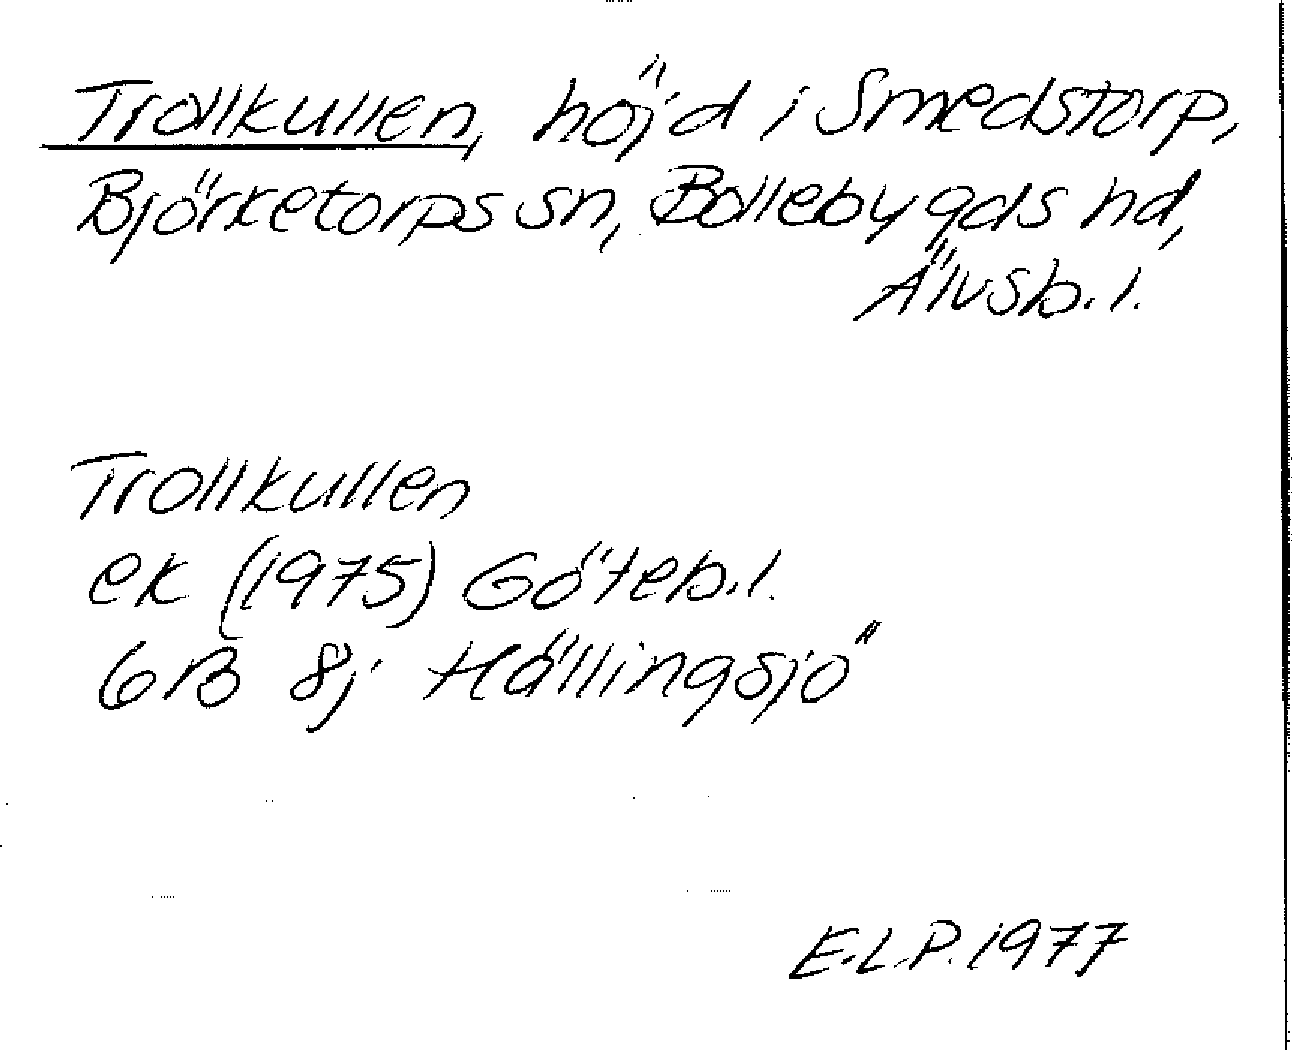 Trollkullen, höjd i Smedstorp,
Björketorps sn, Bollebygds hd,
Älvsb. l.
Trollkullen
ek (1975) Göteb. l.
6B 8j Hällingsjö
E.L.P. 1977